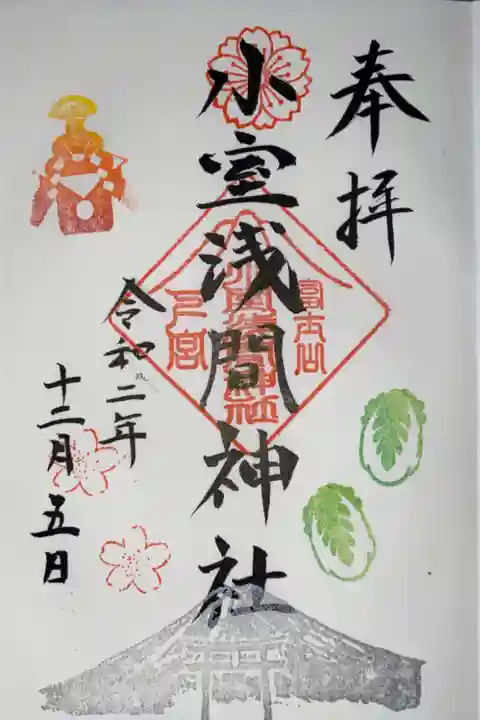 奉拝
小室浅間神社
富士山
小室浅間神社
下宮
令和二年
十二月五日